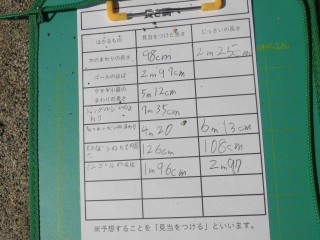 長さ調べ
はかるもの 見当をつけた長さ じっさいの長さ
木のまわりの長さ 98cm 2m25cm
ゴールのはば 2m97cm
ウサギ小屋の
まわりの長さ 5m12cm
ジャングルジムのまわり 7m35cm
4m20 6m13cm
126cm 108cm
ミニゴールのはば 1m96cm 2m97
※予想することを「見当をつける」といいます。